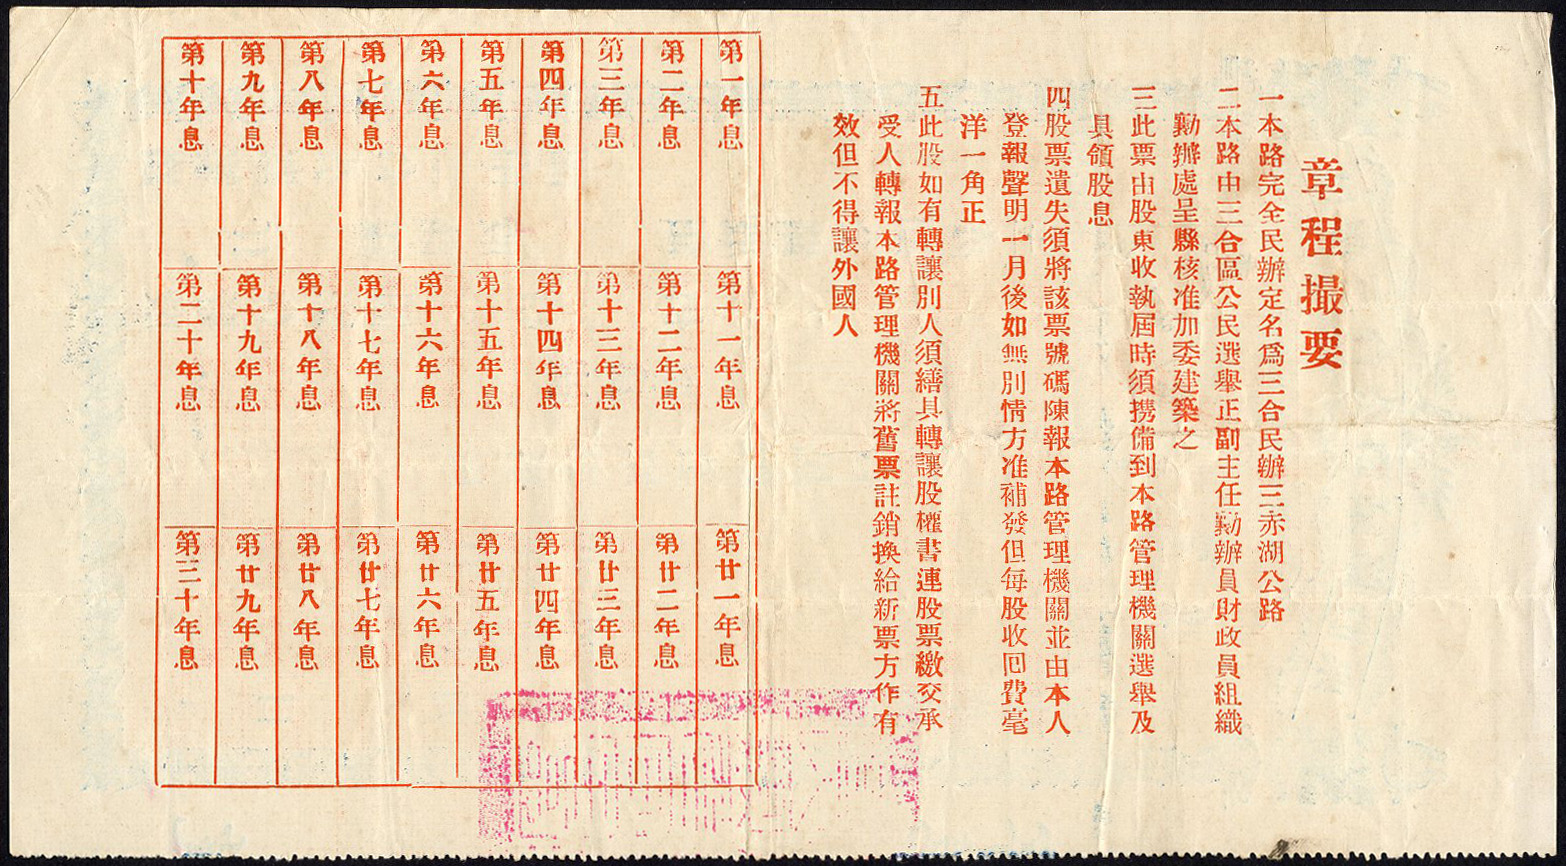 章程撮要
一本路完全民辦定名爲三合民辦三赤湖公路
二本路由三合區公民選舉正副主任勷辦員財政員組織
勷辦處呈縣核准加委建築之
三此票由股東收執屆時須携備到本路管理機關選舉及
具領股息
四股票遺失須將該票號碼陳報本路管理機關並由本人
登報聲明一月後如無別情方准補發但每股收回費毫
洋一角正
五此股如有轉讓別人須繕具轉讓股權書連股票繳交承
受人轉報本路管理機關將舊票註銷換給新票方作有
效但不得讓外國人
第一年息
第二年息
第三年息
第四年息
第五年息
第六年息
第七年息
第八年息
第九年息
第十年息
第十一年息
第十二年息
第十三年息
第十四年息
第十五年息
第十六年息
第十七年息
第十八年息
第十九年息
第二十年息
第廿一年息
第廿二年息
第廿三年息
第廿四年息
第廿五年息
第廿六年息
第廿七年息
第廿八年息
第廿九年息
第三十年息